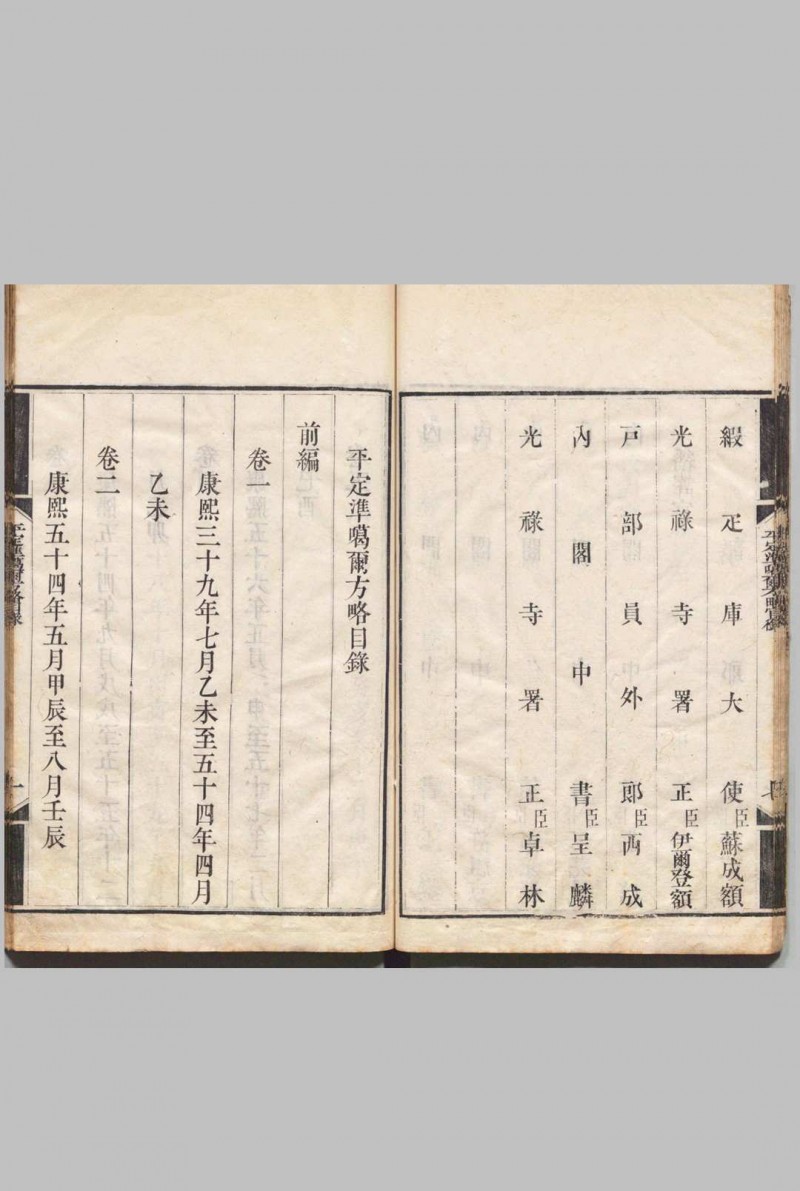 緞疋庫郎大使臣蘇成額
光祿寺署正臣伊爾登額
戸部員外郎臣西成
內閣中書臣呈麟
光祿寺署正臣卓林
平定準噶爾方略目錄
前編
卷一
康熙三十九年七月乙未至五十四年四月
乙未
卷二
康熙五十四年五月甲辰至八月壬辰